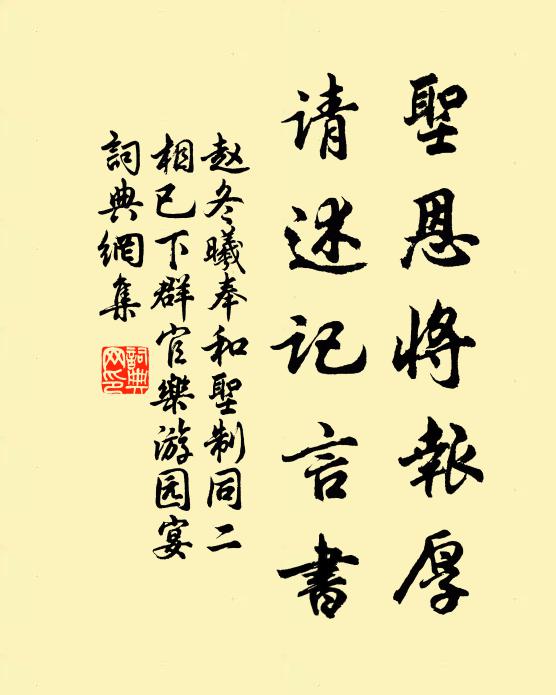 聖恩将報厚
请述记言書
赵冬曦奉和聖制同二
相已下群官樂游园宴
詞典網集
詞典
网印